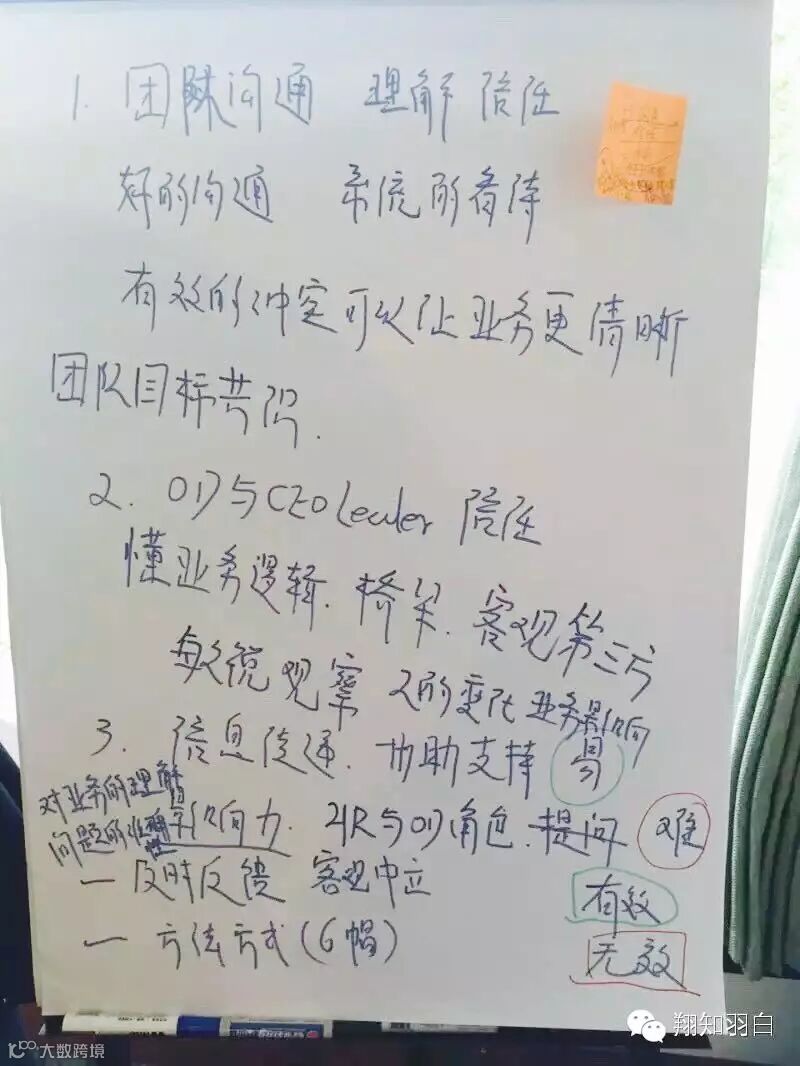 1. 团队沟通 理解 信任
好的沟通 系统的看待
有效的冲突可以让业务更清晰
团队目标共识.
2. OD与CEO Leader 信任
懂业务逻辑. 桥梁. 客观第三方
敏锐观察 人的变化 业务影响
3. 信息传通. 协助支持 易
对业务的理解
问题的准确性
影响力. HR与OD角色. 提问 难
一 及时反馈 客观中立
有效
一 方法方式(6帽)
无效
翔知羽白
大数跨境